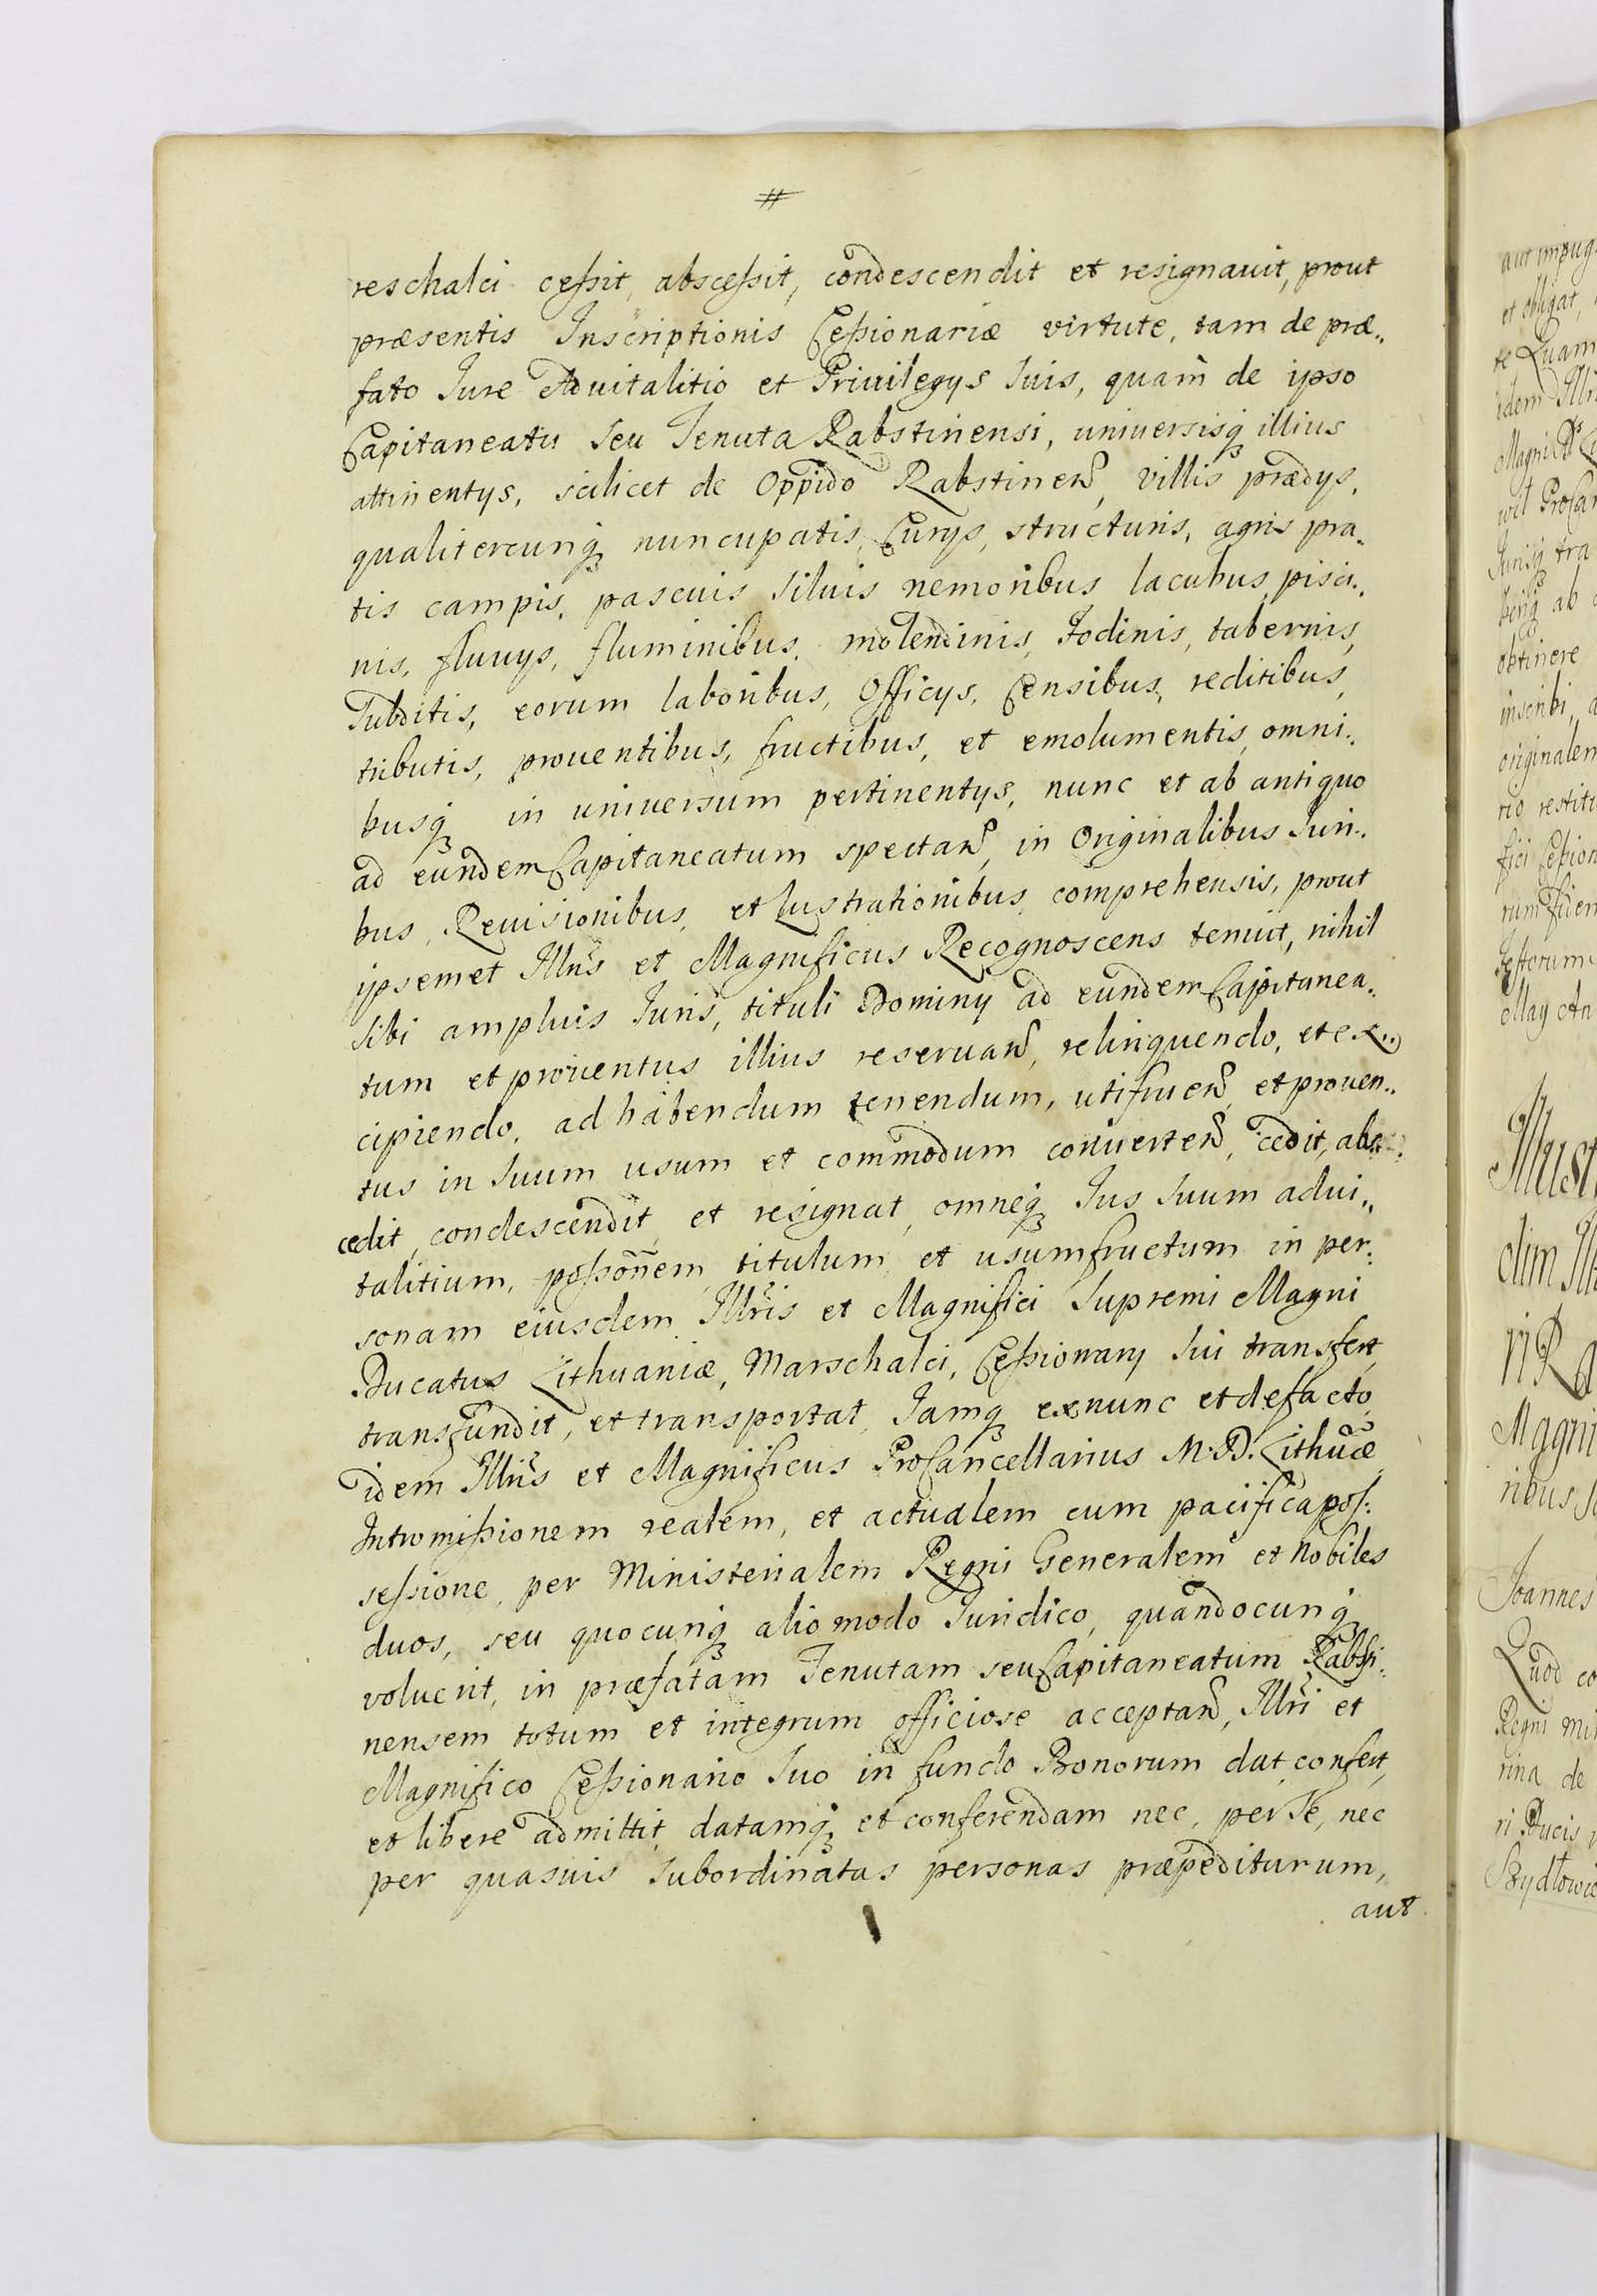 #
reschalci cessit, abscessit, condescendit et resignauit, prout
præsentis Inscriptionis Cessionariæ virtute, tam de præ„
fato Iure Aduitalitio et Priuilegys suis, quam de ypso
Capitaneatu seu Tenuta Rabstinensi, uniuersisq illius
attinentys, scilicet de Oppido Rabstinen, villis prædys,
qualitercunq nuncupatis, Curys, structuris, agris pra„
tis campis, pascuis siluis nemoribus lacubus, pisci„
nis, fluuys, fluminibus, molendinis, Fodinis, tabernis,
Subditis, eorum laboribus, Officys, Censibus, reditibus,
tributis, prouentibus, fructibus, et emolumentis, omni„
busq in uniuersum pertinentys, nunc et ab antiquo
ad eundem Capitaneatum spectan, in Originalibus Iuri„
bus, Reuisionibus, et Lustrationibus comprehensis, prout
ypsemet Illris et Magnificus Recognoscens tenuit, nihil
sibi amplius Iuris, tituli Dominy ad eundem Capitanea„
tum et prouentus illius reseruan, relinquendo, et ex„
cipiendo, ad habendum tenendum, utifruen, et prouen„
tus in suum usum et commodum conuerten, cedit, abs„
cedit, condescendit, et resignat, omneq Ius suum adui„
talitium, possonem, titulum, et usumfructum in per„
sonam eiusdem Illris et Magnifici Supremi Magni
Ducatus Lithuaniæ, Marschalci, Cessionary sui transfert,
transfundit, et transportat, Iamq exnunc et defacto,
idem Illris et Magnificus ProCancellarius M. D. Lithuæ
Intromissionem realem, et actualem cum pacifica pos„
sessione, per Ministerialem Regni Generalem et Nobiles
duos, seu quocunq alio modo Iuridico, quandocunq
voluerit, in præfatam Tenutam seu Capitaneatum Rabsti„
nensem totum et integrum officiose acceptan, Illri et
Magnifico Cessionario suo in fundo Bonorum dat, confert,
et libere admittit, datamq et conferendam nec, per se, nec
per quasuis subordinatas personas præpediturum,
aut
aut impug
et obligat,
te Quam
idem Illri
Magni
uit ProCan
tra
ab
obtinere
inscribi, a
originalem
rio restitu
fici Cession
rum fidem
Testorum
May An
Illust
olim Ill
ri R
Magni
ribus
Ioannes
Quod co
Regni Min
rina de
ri Ducis
Szydłowie